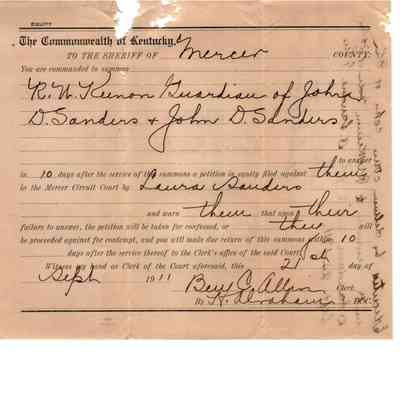 EQUITY
The Commonwealth of Kentucky,
TO THE SHERIFF OF Mercer COUNTY:
You are commanded to summon
R. W. Keenon Guardian of John
D. Sanders & John D. Sanders
to answer
in 10 days after the service of the summons a petition in equity filed against them
in the Mercer Circuit Court by Laura Sanders
and warn them that upon their
failure to answer, the petition will be taken for confessed, or they will
be proceeded against for contempt, and you will make due return of this summons within 10
days after the service thereof to the Clerk's office of the said Court.
Witness my hand as Clerk of the Court aforesaid, this 21st day of
Sept 1911 Ben C. Allin Clerk.
By H. Abraham D.C.